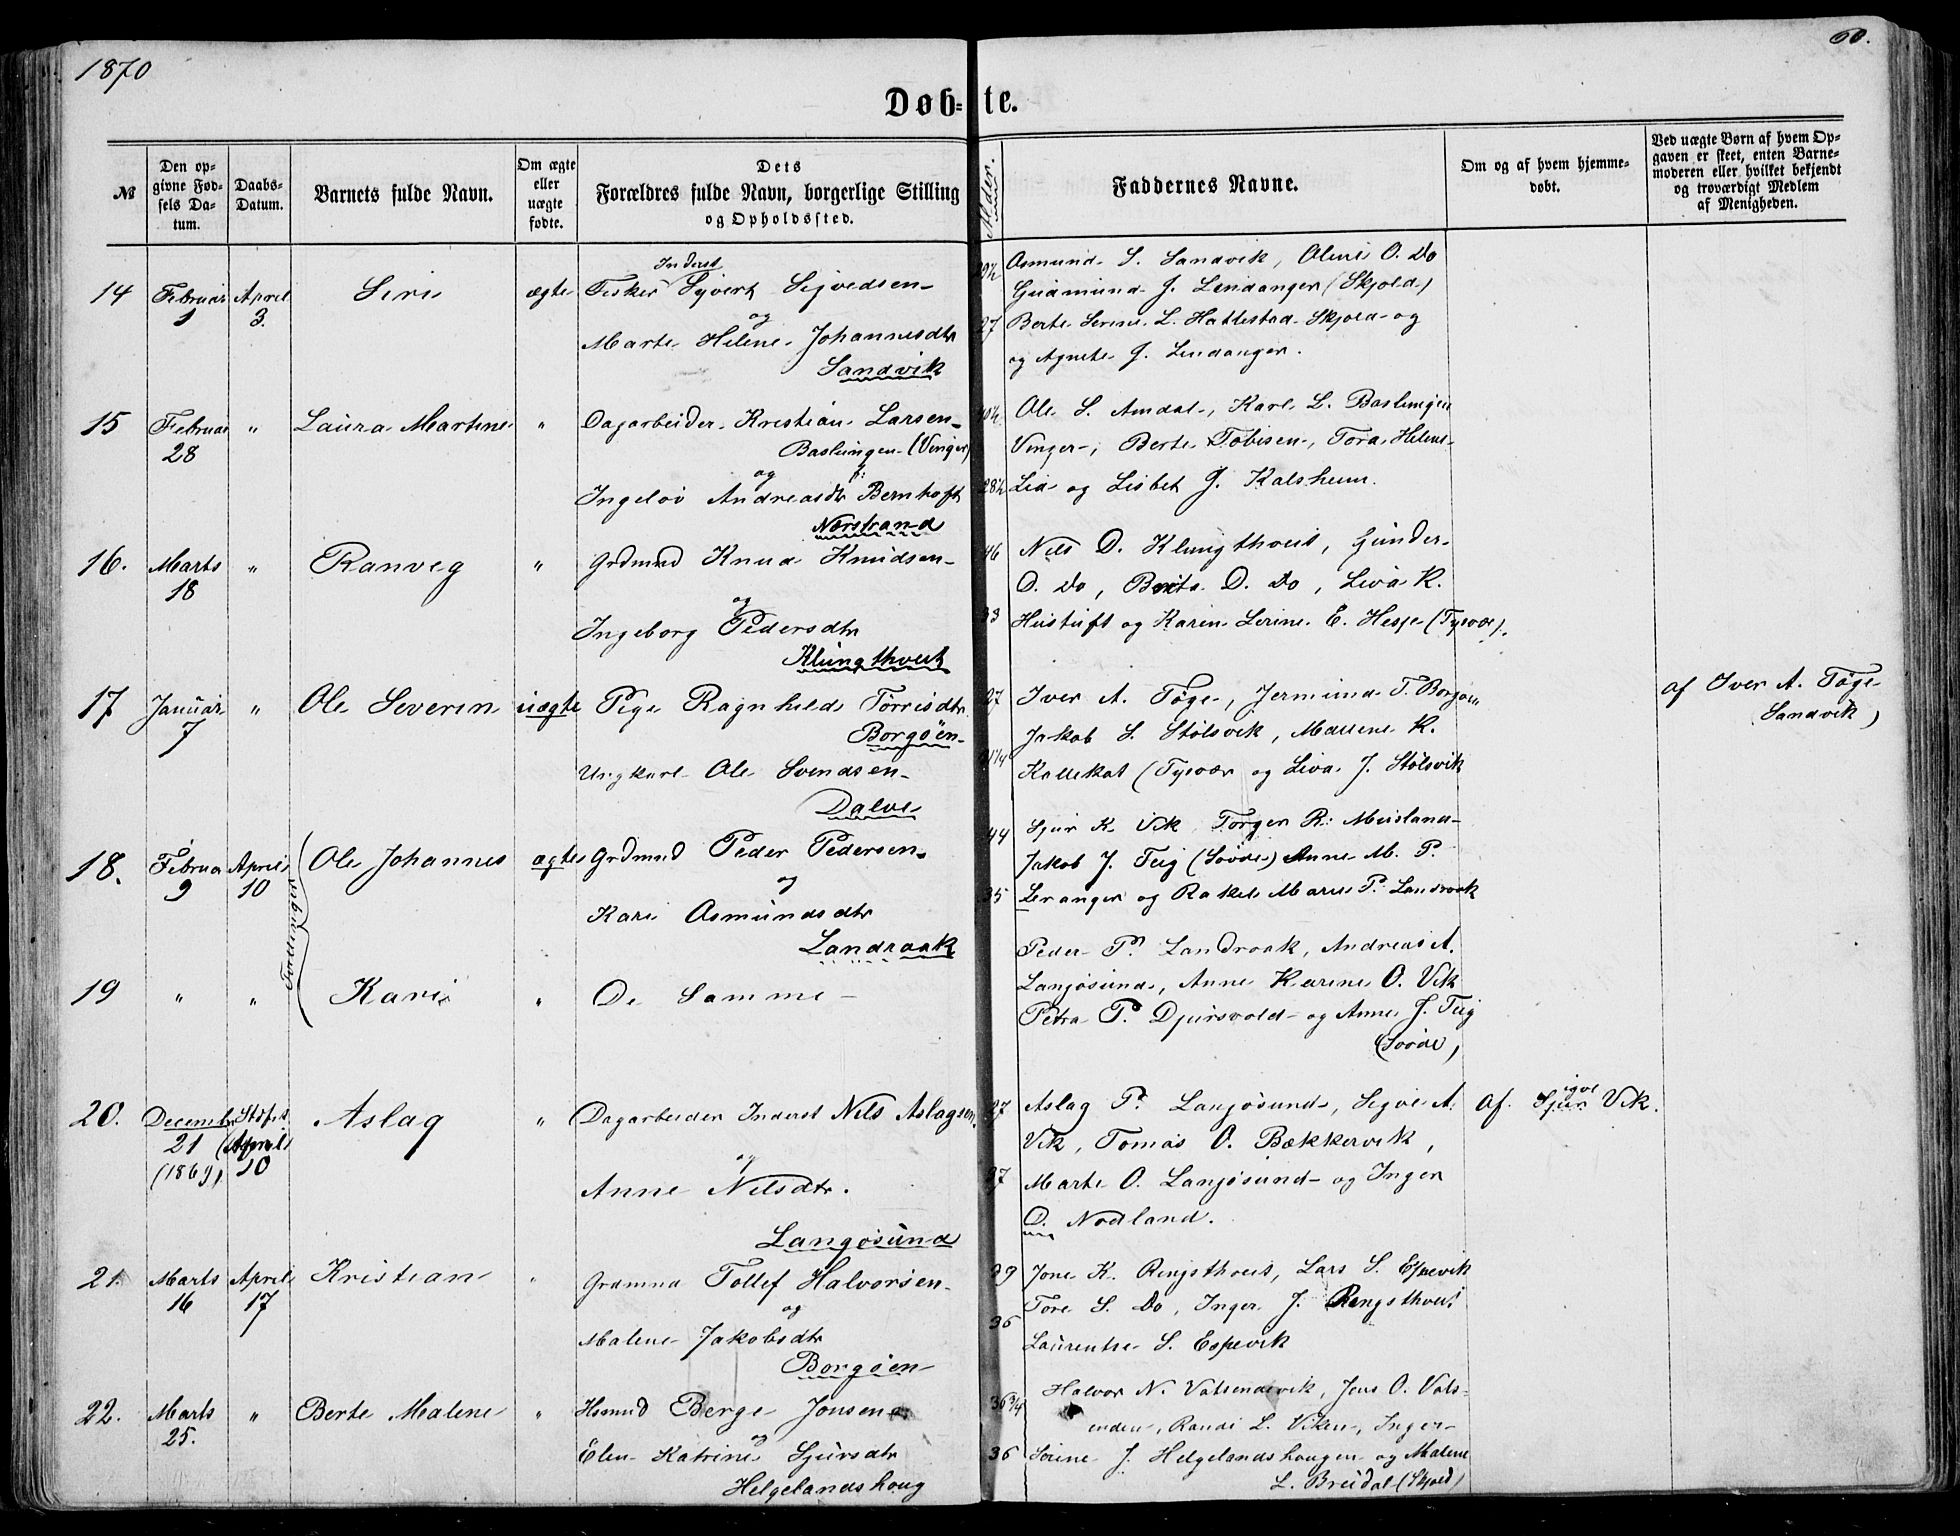 1870
60.
Døb=te.
№
Den opgivne Fødsels Datum.
Daabs-Datum.
Barnets fulde Navn.
Om ægte eller uægte fødte.
Dets Forældres fulde Navn, borgerlige Stilling og Opholdssted.
Alder.
Faddernes Navne.
Om og af hvem hjemmedøbt.
Ved uægte Børn af hvem Opgaven er skeet, enten Barnemoderen eller hvilket bekjendt og troværdigt Medlem af Menigheden.
14 Februar 1 April 3. Siri ægte
Inderst
Fisker Syvert Sigvedsen
og
Marte Helene Johannesdtr
Sandvik
27
Asmund S. Sandvik, Oline O. Do
Gudmund J. Lindanger (Skjold)
Berte Serine L. Hattestad Skjold og
og Agnete J. Lindanger.
15 Februar 28 " Laura Martine "
Dagarbeider Kristian Larsen
Baslungen (Vinger)
og
Ingeløv Andreasdtr Bernhoft
Nerstrand
28½
Ole S. Amdal, Karl L. Baslungen
Vinger, Berte Tobisen, Tora Helene
Lia og Lisbet J. Kalsheim.
16. Marts 18 " Ranveg "
Grdmnd Knud Knudsen
og
Ingeborg Pedersdtr
Klungthveit
46
33
Nils D. Klungthveit, Gunder
D. Do, Berta D. Do, Liva K.
Hustuft og Karen Serine E. Hesje (Tysvær).
17 Januar 7 " Ole Severin uægte
Pige Ragnhild Torrisdtr
Borgøen
Ungkarl Ole Svendsen
Dalve
27
Iver A. Tøge, Jermund T. Borgøen
Jakob S. Stølsvik, Mallene K.
Kallekot (Tysvær og Liva J. Stølsvik
af Iver A. Tøge
Sandvik)
18. Februar 9 April 10 Ole Johannes ægte
Tvillinger
Grdmnd Peder Pedersen
og
Kari Asmundsdtr
Landraak
44
35
Sjur K. Vik, Torger R. Musland
Jakob J. Teig (Sovde) Anne M. P.
Leranger og Rakel Marie P. Landraak
19 " " Kari "
De Samme
Peder P. Landraak, Andreas A.
Langøsund, Anne Karine O. Vik
Petra P. Djursvold og Anne J. Teig
(Sovde)
20. Decembr 21 (1869) April 10 Aslag "
Dagarbeider Inderst Nils Aslagsen
og
Anne Nilsdtr.
Langøsund
27
37
Aslag P. Langøsund, Sigve A.
Vik, Tomas O. Bækkervik,
Marte O. Langøsund og Inger
D. Nodland.
af Sjur Vik.
21. Marts 16 April 17 Kristian "
Grdmnd Tollef Halvorsen
og
Malene Jakobsdtr
Borgøen
39
36
Jone K. Ringsthveit, Lars S. Espevik
Tore S. Do, Inger J. Ringsthveit
Laurentse S. Espevik
22. Marts 25. " Berte Malene "
Hsmnd Børge Jonsen
og
Elen Katrine Sjursdtr
Helgelandshoug
36¾
36
Halvor N. Vatsendvik, Jens O. Vats-
enden, Randi L. Viken, Inger
Serine J. Helgelandshougen og Malene
L. Breidal (Skjold)